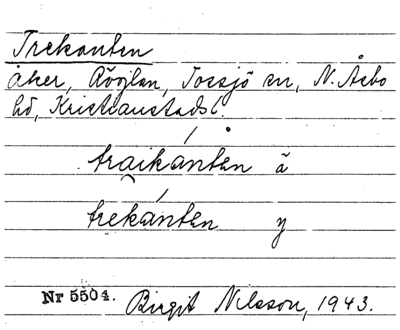 Trekanten
åker, Röglan, Tossjö sn, N. Åsbo
hd, Kristianstads l.
traikánten ä
trekánten y
Nr 5504. Birgit Nilsson, 1943.